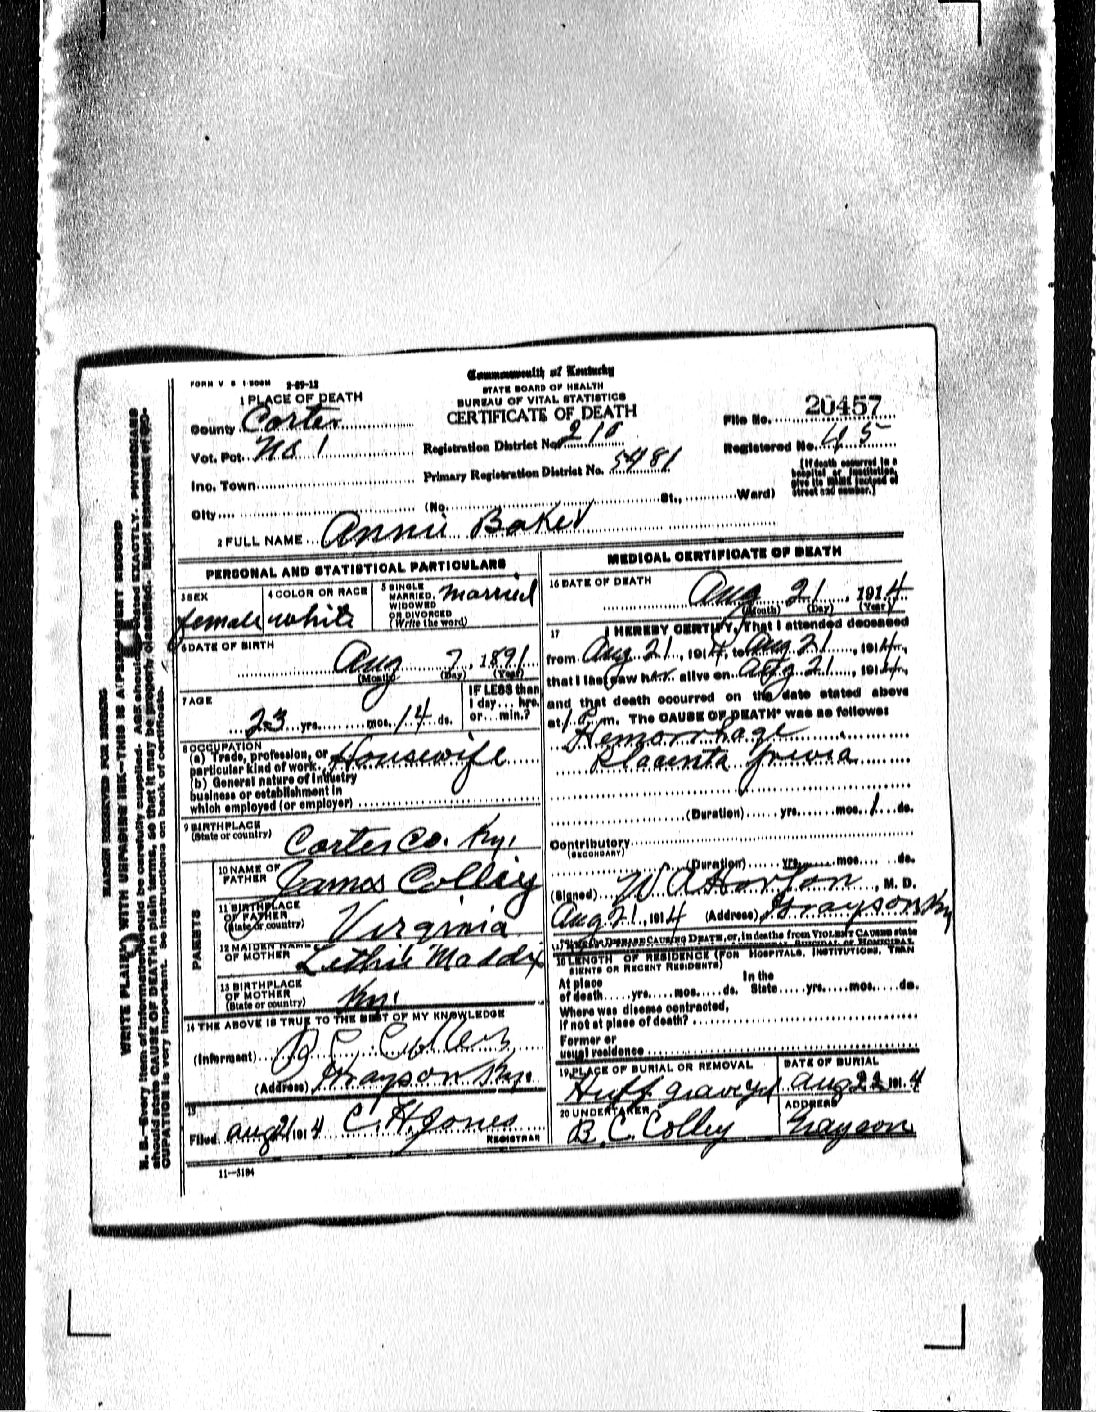 FORM V S 1-500M 2-07-12
Commonwealth of Kentucky
STATE BOARD OF HEALTH
BUREAU OF VITAL STATISTICS
CERTIFICATE OF DEATH
1 PLACE OF DEATH
County Carter
Vot. Pct. No 1
Inc. Town
City
Registration District No. 210
Primary Registration District No. 5481
(No. St., Ward)
File No. 20457
Registered No. 45
[If death occurred in a
hospital or institution,
give its NAME instead of
street and number.]
2 FULL NAME Annie Baker
PERSONAL AND STATISTICAL PARTICULARS
3 SEX
female
4 COLOR OR RACE
white
5 SINGLE
MARRIED,
WIDOWED
OR DIVORCED
(Write the word)
married
6 DATE OF BIRTH
Aug 7, 1891
(Month) (Day) (Year)
7 AGE
23 yrs. mos. 14 ds.
IF LESS than
1 day... hrs.
or... min.?
8 OCCUPATION
(a) Trade, profession, or
particular kind of work Housewife
(b) General nature of industry
business or establishment in
which employed (or employer)
9 BIRTHPLACE
(State or country)
Carter Co. Ky.
PARENTS
10 NAME OF
FATHER James Colley
11 BIRTHPLACE
OF FATHER
(State or country) Virginia
12 MAIDEN NAME
OF MOTHER Lethie Maddix
13 BIRTHPLACE
OF MOTHER
(State or country) Ky.
14 THE ABOVE IS TRUE TO THE BEST OF MY KNOWLEDGE
(Informant)
(Address) Grayson Ky.
15
Filed Aug 21 1914 C. H. Jones
REGISTRAR
11-3184
MEDICAL CERTIFICATE OF DEATH
16 DATE OF DEATH
Aug 21, 1914
(Month) (Day) (Year)
17 I HEREBY CERTIFY, That I attended deceased
from Aug 21, 1914, to Aug 21, 1914,
that I last saw her alive on Aug 21, 1914,
and that death occurred on the date stated above
at 1 P m. The CAUSE OF DEATH* was as follows:
Hemorrhage
Placenta Previa
(Duration) yrs. mos. 1 ds.
Contributory
(SECONDARY)
(Duration) yrs. mos. ds.
(Signed) W A Horton, M. D.
Aug 21, 1914 (Address) Grayson Ky
DISEASE CAUSING DEATH, or, in deaths from VIOLENT CAUSES state
18 LENGTH OF RESIDENCE (FOR HOSPITALS, INSTITUTIONS, TRAN
SIENTS OR RECENT RESIDENTS)
At place
of death yrs. mos. ds.
In the
State yrs. mos. ds.
Where was disease contracted,
if not at place of death?
Former or
usual residence
19 PLACE OF BURIAL OR REMOVAL
Huff graveyd
DATE OF BURIAL
Aug 22 1914
20 UNDERTAKER
B. C. Colley
ADDRESS
Grayson
MARGIN RESERVED FOR BINDING
WRITE PLAINLY WITH UNFADING INK—THIS IS A PERMANENT RECORD